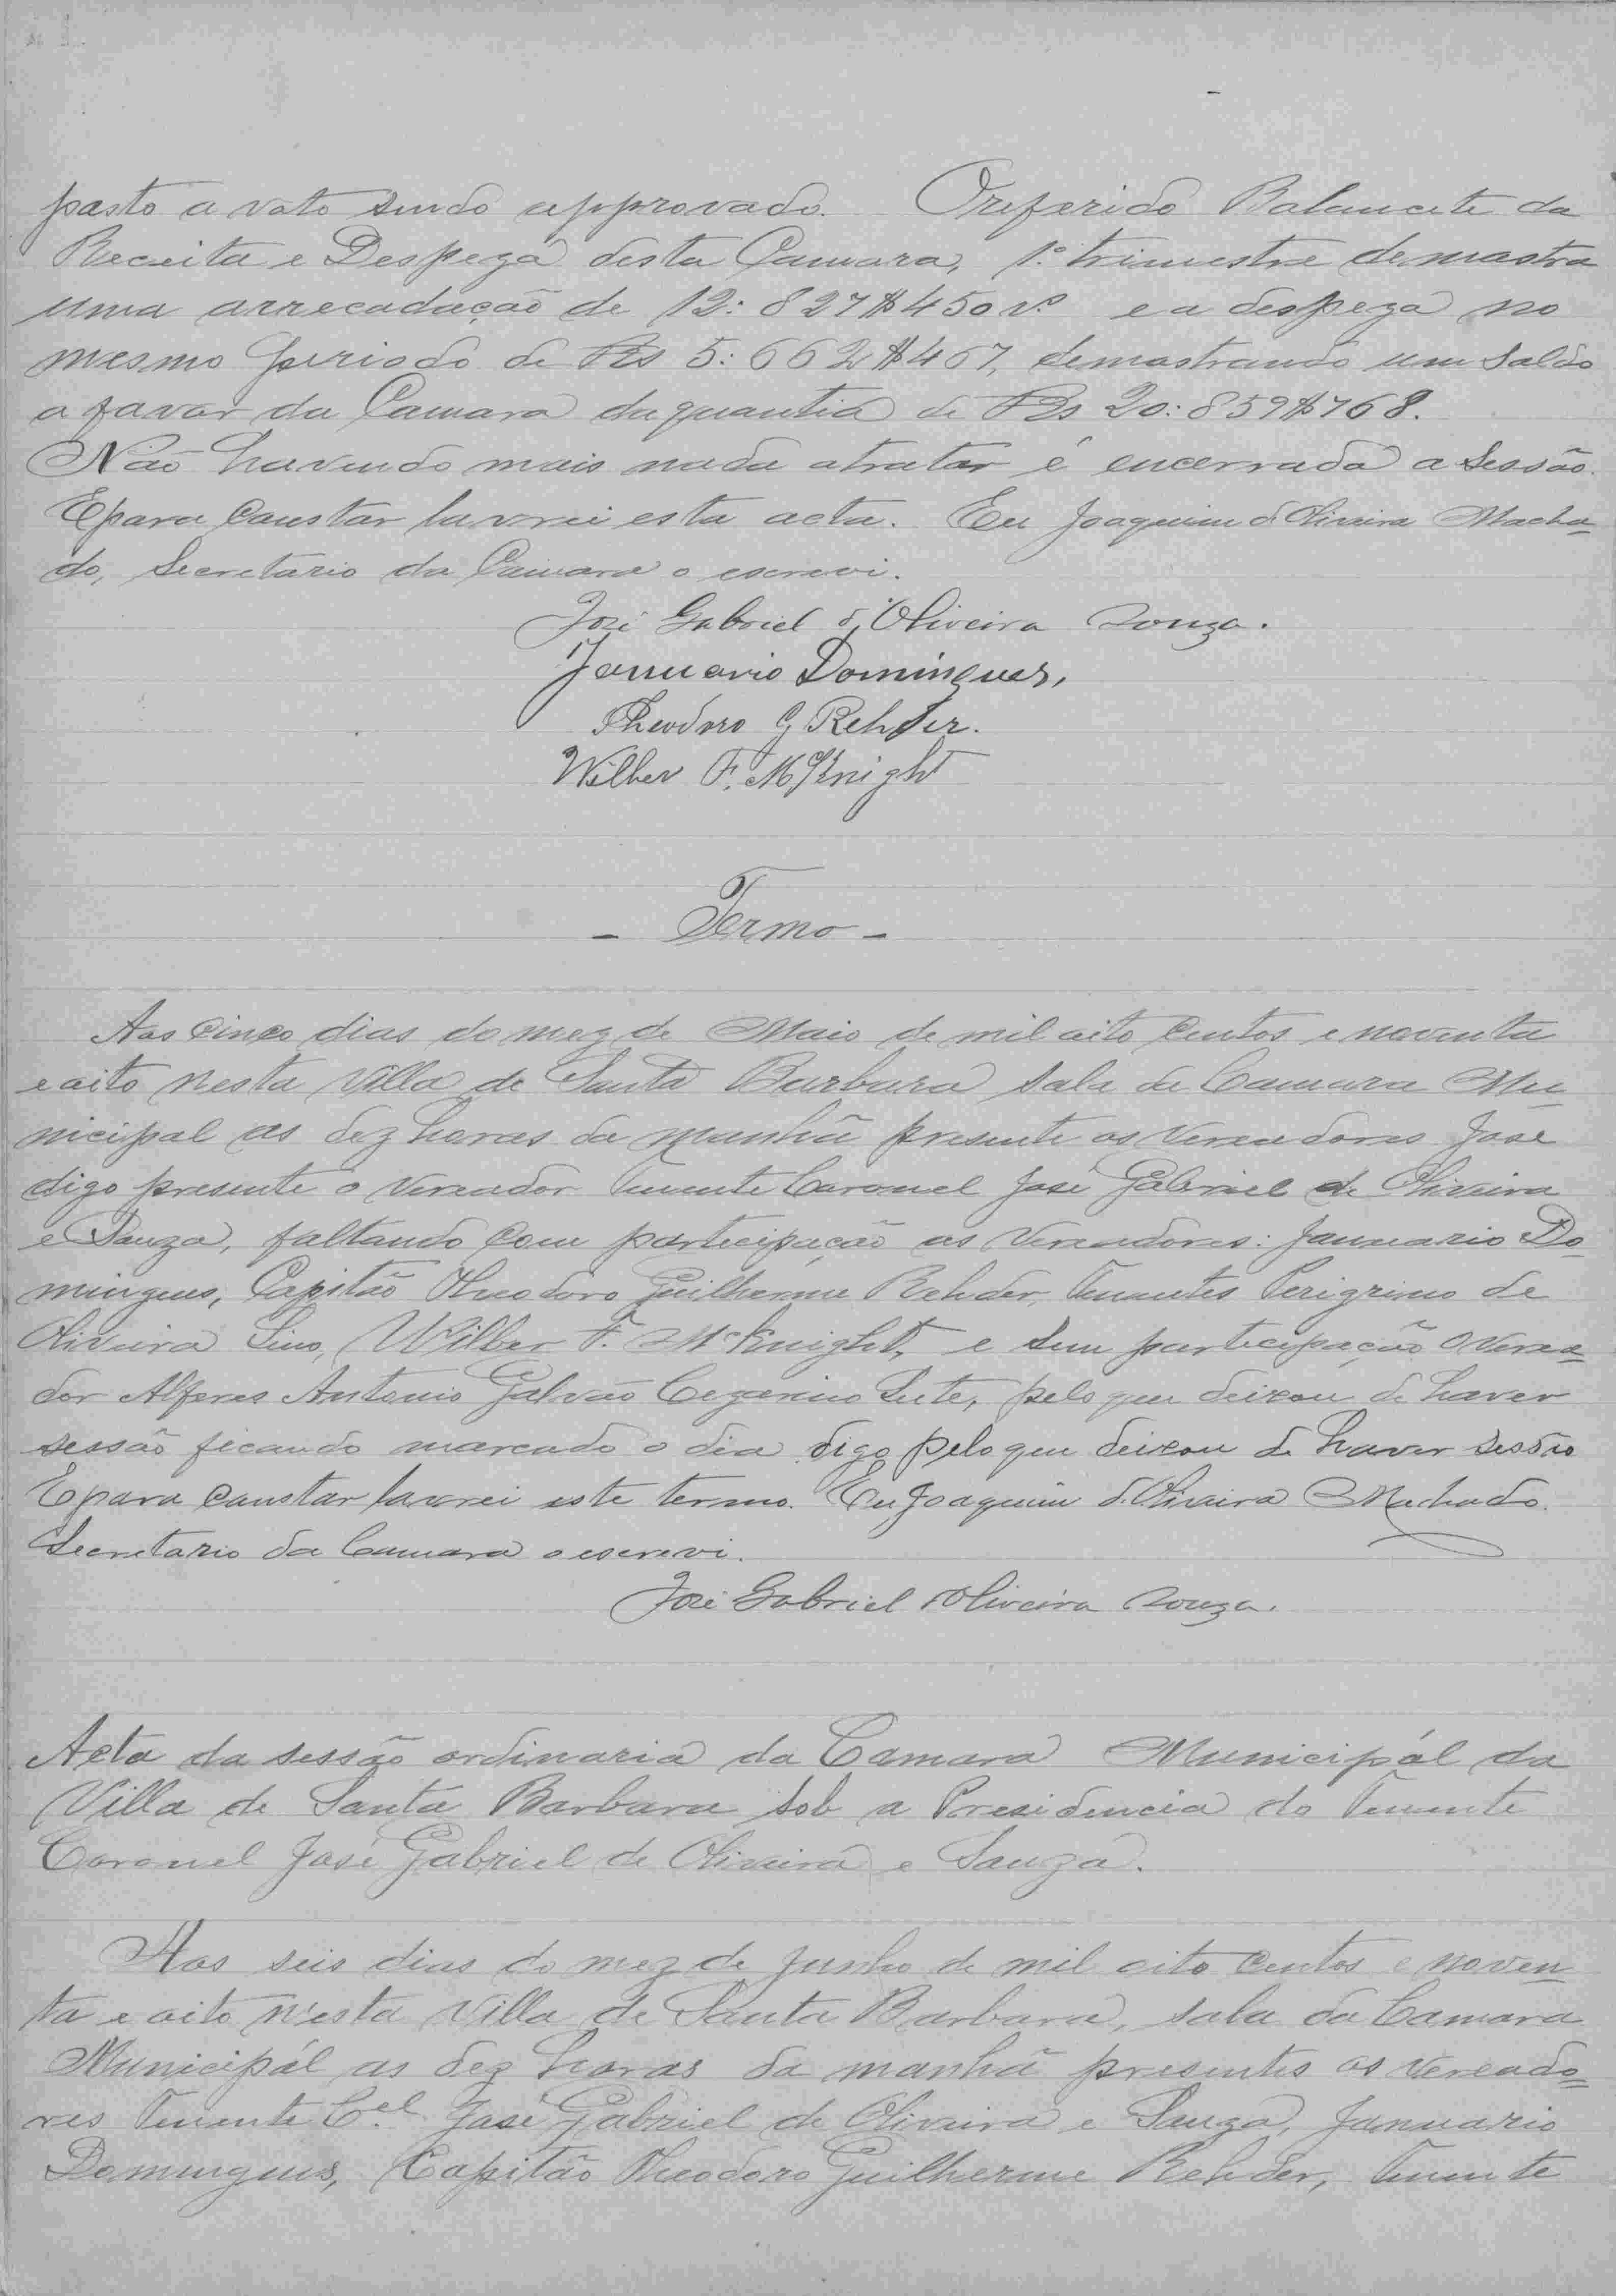 posto a voto sendo approvado. O referido Balancete da
Receita e Despeza desta Camara, 1.º trimestre demostra
uma arrecadação de 12:827$450 rs e a despeza no
mesmo periodo de Rs 5:662$467, demostrando um Saldo
a favor da Camara da quantia de Rs 20:859$768.
Não havendo mais nada a tratar é encerrada a Sessão.
E para Constar lavrei esta acta. Eu Joaquim d'Oliveira Macha-
do, Secretario da Camara o escrevi.
José Gabriel d'Oliveira Souza.
Januario Domingues,
Theodoro G Rehder.
Wilber F. McKnight
- Termo -
Aos Cinco dias do mez de Maio de mil oito Centos e noventa
e oito nesta Villa de Santa Barbara Sala da Camara Mu-
nicipal as dez horas da manhã presente os Vereadores José
digo presente o Vereador Tenente Coronel José Gabriel de Oliveira
e Souza, faltando Com participação os Vereadores: Januario Do-
mingues, Capitão Theodoro Guilherme Rehder, Tenentes Perigrino de
Oliveira Lino, Wilber F. McKnight, e Sem participação o Verea-
dor Alferes Antonio Galvão Cezarino Leite, pelo que deixou de haver
sessão ficando marcado o dia digo pelo que deixou de haver sessão
E para Constar lavrei este termo. Eu Joaquim d'Oliveira Machado.
Secretario da Camara o escrevi.
José Gabriel d'Oliveira Souza.
Acta da sessão ordinaria da Camara Municipál da
Villa de Santa Barbara Sob a Presidencia do Tenente
Coronel José Gabriel de Oliveira e Souza.
Aos seis dias do mez de Junho de mil oito Centos e noven-
ta e oito n'esta Villa de Santa Barbara, sala da Camara
Municipál as dez horas da manhã presentes os Vereado-
res Tenente Cel. José Gabriel de Oliveira e Souza, Januario
Domingues, Capitão Theodoro Guilherme Rehder, Tenente